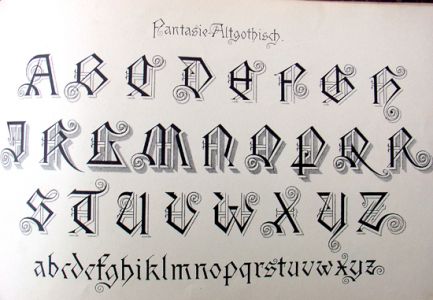 Fantasie-Altgothisch.
A B C D E F G H
J K L M N O P Q R
S T U V W X Y Z
abcdefghiklmnopqrstuvwxyz